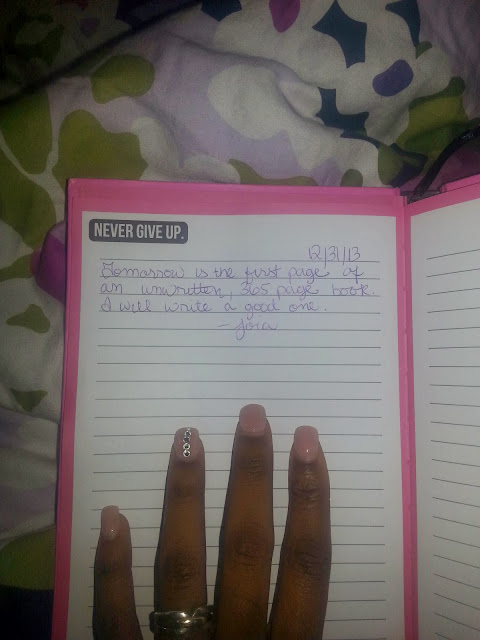 NEVER GIVE UP.
12/31/13
Tomorrow is the first page of
an unwritten, 365 page book.
I will write a good one.